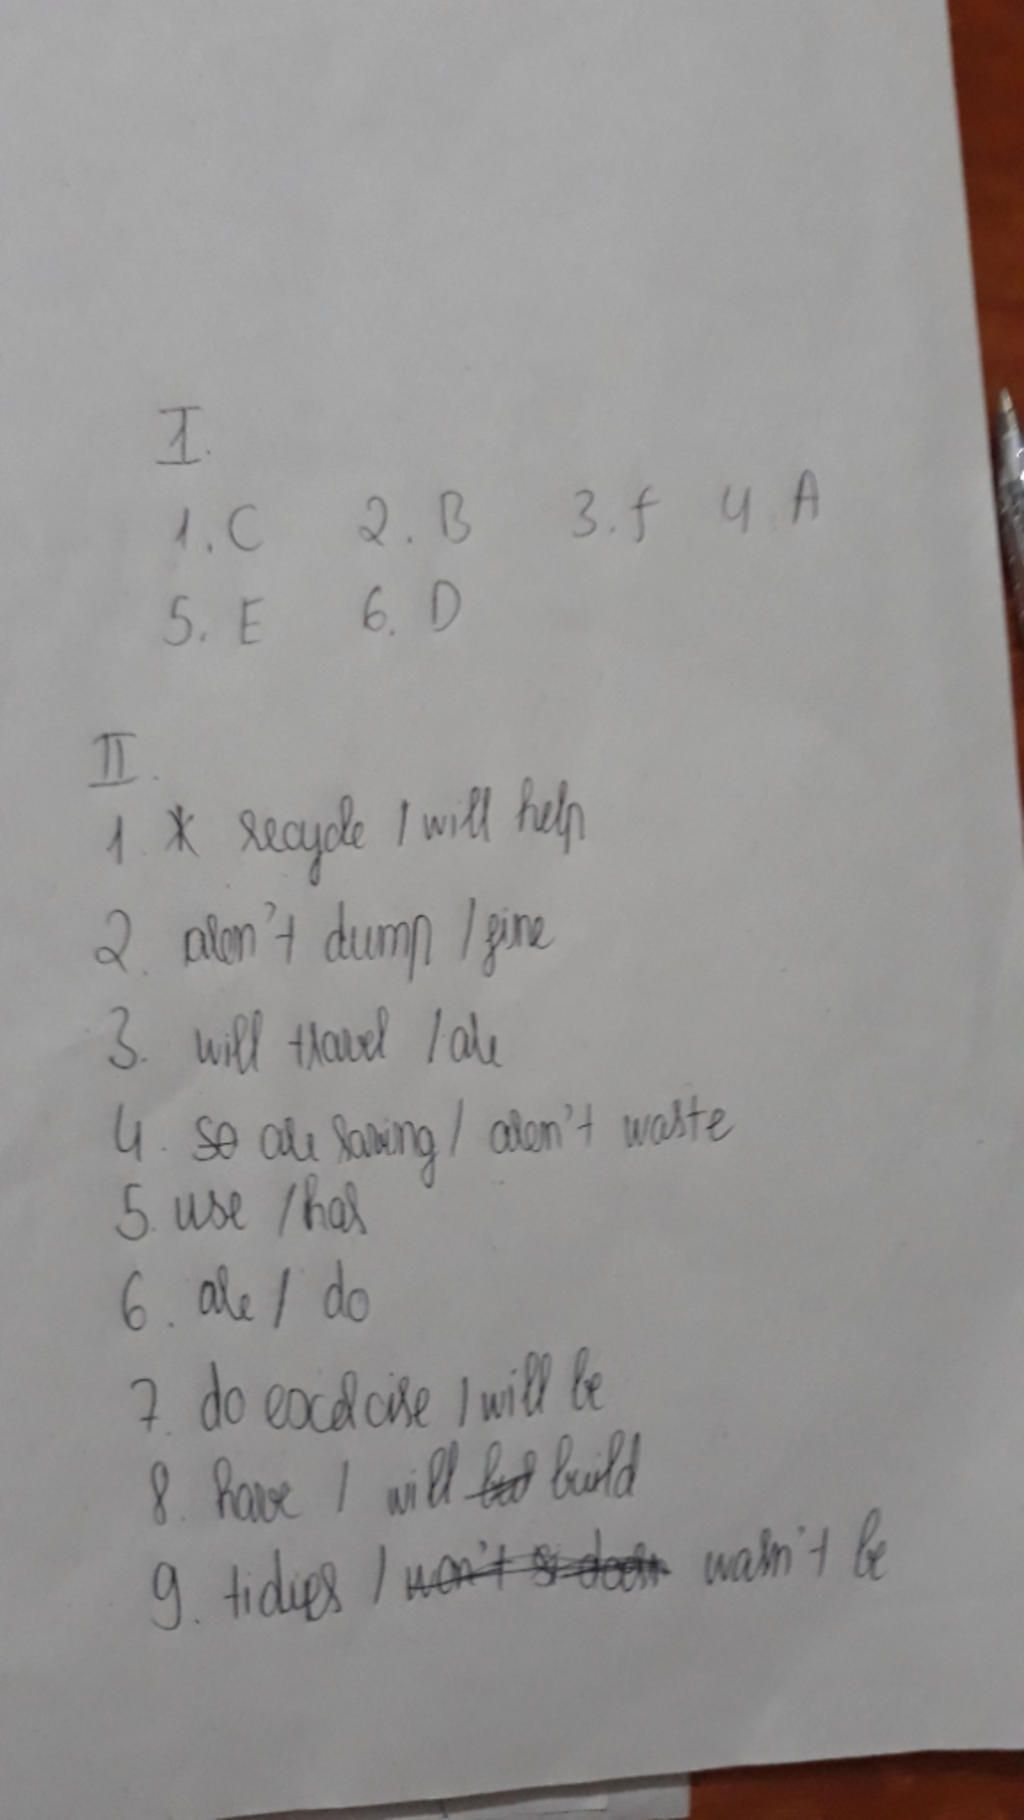 I.
1. C 2. B 3. f 4. A
5. E 6. D
II.
1. * recycle / will help
2. aren't dump / fine
3. will travel / are
4. so are saving / aren't waste
5. use / has
6. are / do
7. do excercise / will be
8. have / will build
9. tidies / won't wasn't be